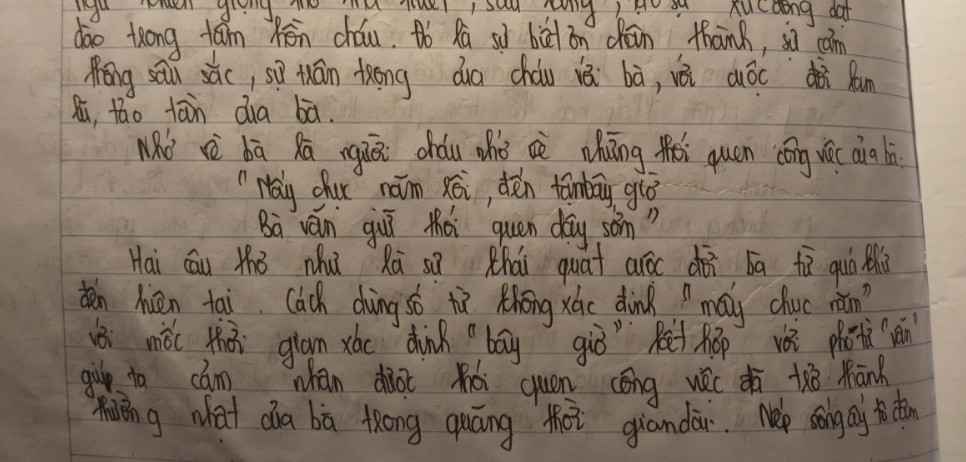 xúc động dạt
dào trong tâm hồn cháu. Đó là sự biết ơn chân thành, sự cảm
thông sâu sắc, sự trân trọng của cháu với bà, với cuộc đời lam
lũ, tảo tần của bà.
Nhớ về bà là người cháu nhớ về những thói quen công việc của bà.
"Mấy chục năm rồi, đến tận bây giờ
Bà vẫn giữ thói quen dậy sớm"
Hai câu thơ như là sự khái quát cuộc đời bà từ quá khứ
đến hiện tại. Cách dùng số từ không xác định "mấy chục năm"
với mốc thời gian xác định "bây giờ" kết hợp với phó từ "vẫn"
giúp ta cảm nhận được thói quen công việc đã trở thành
thường nhật của bà trong quãng thời gian dài. Nếp sống ấy